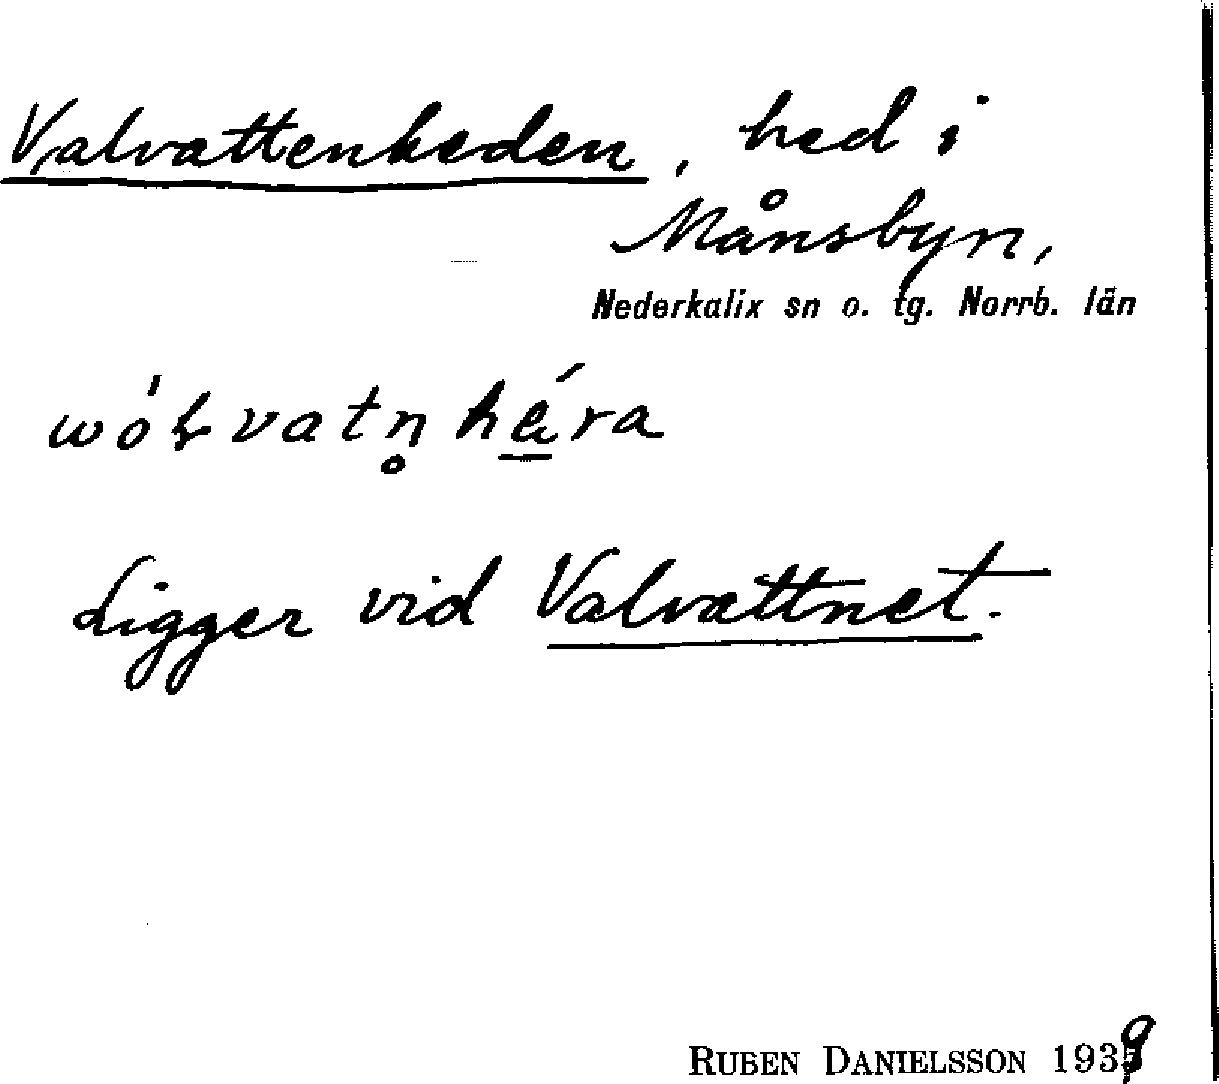 Valvattenheden, hed i
Månsbyn,
Nederkalix sn o. tg. Norrb. län
Ligger vid Valvattnet.
RUBEN DANIELSSON 1939